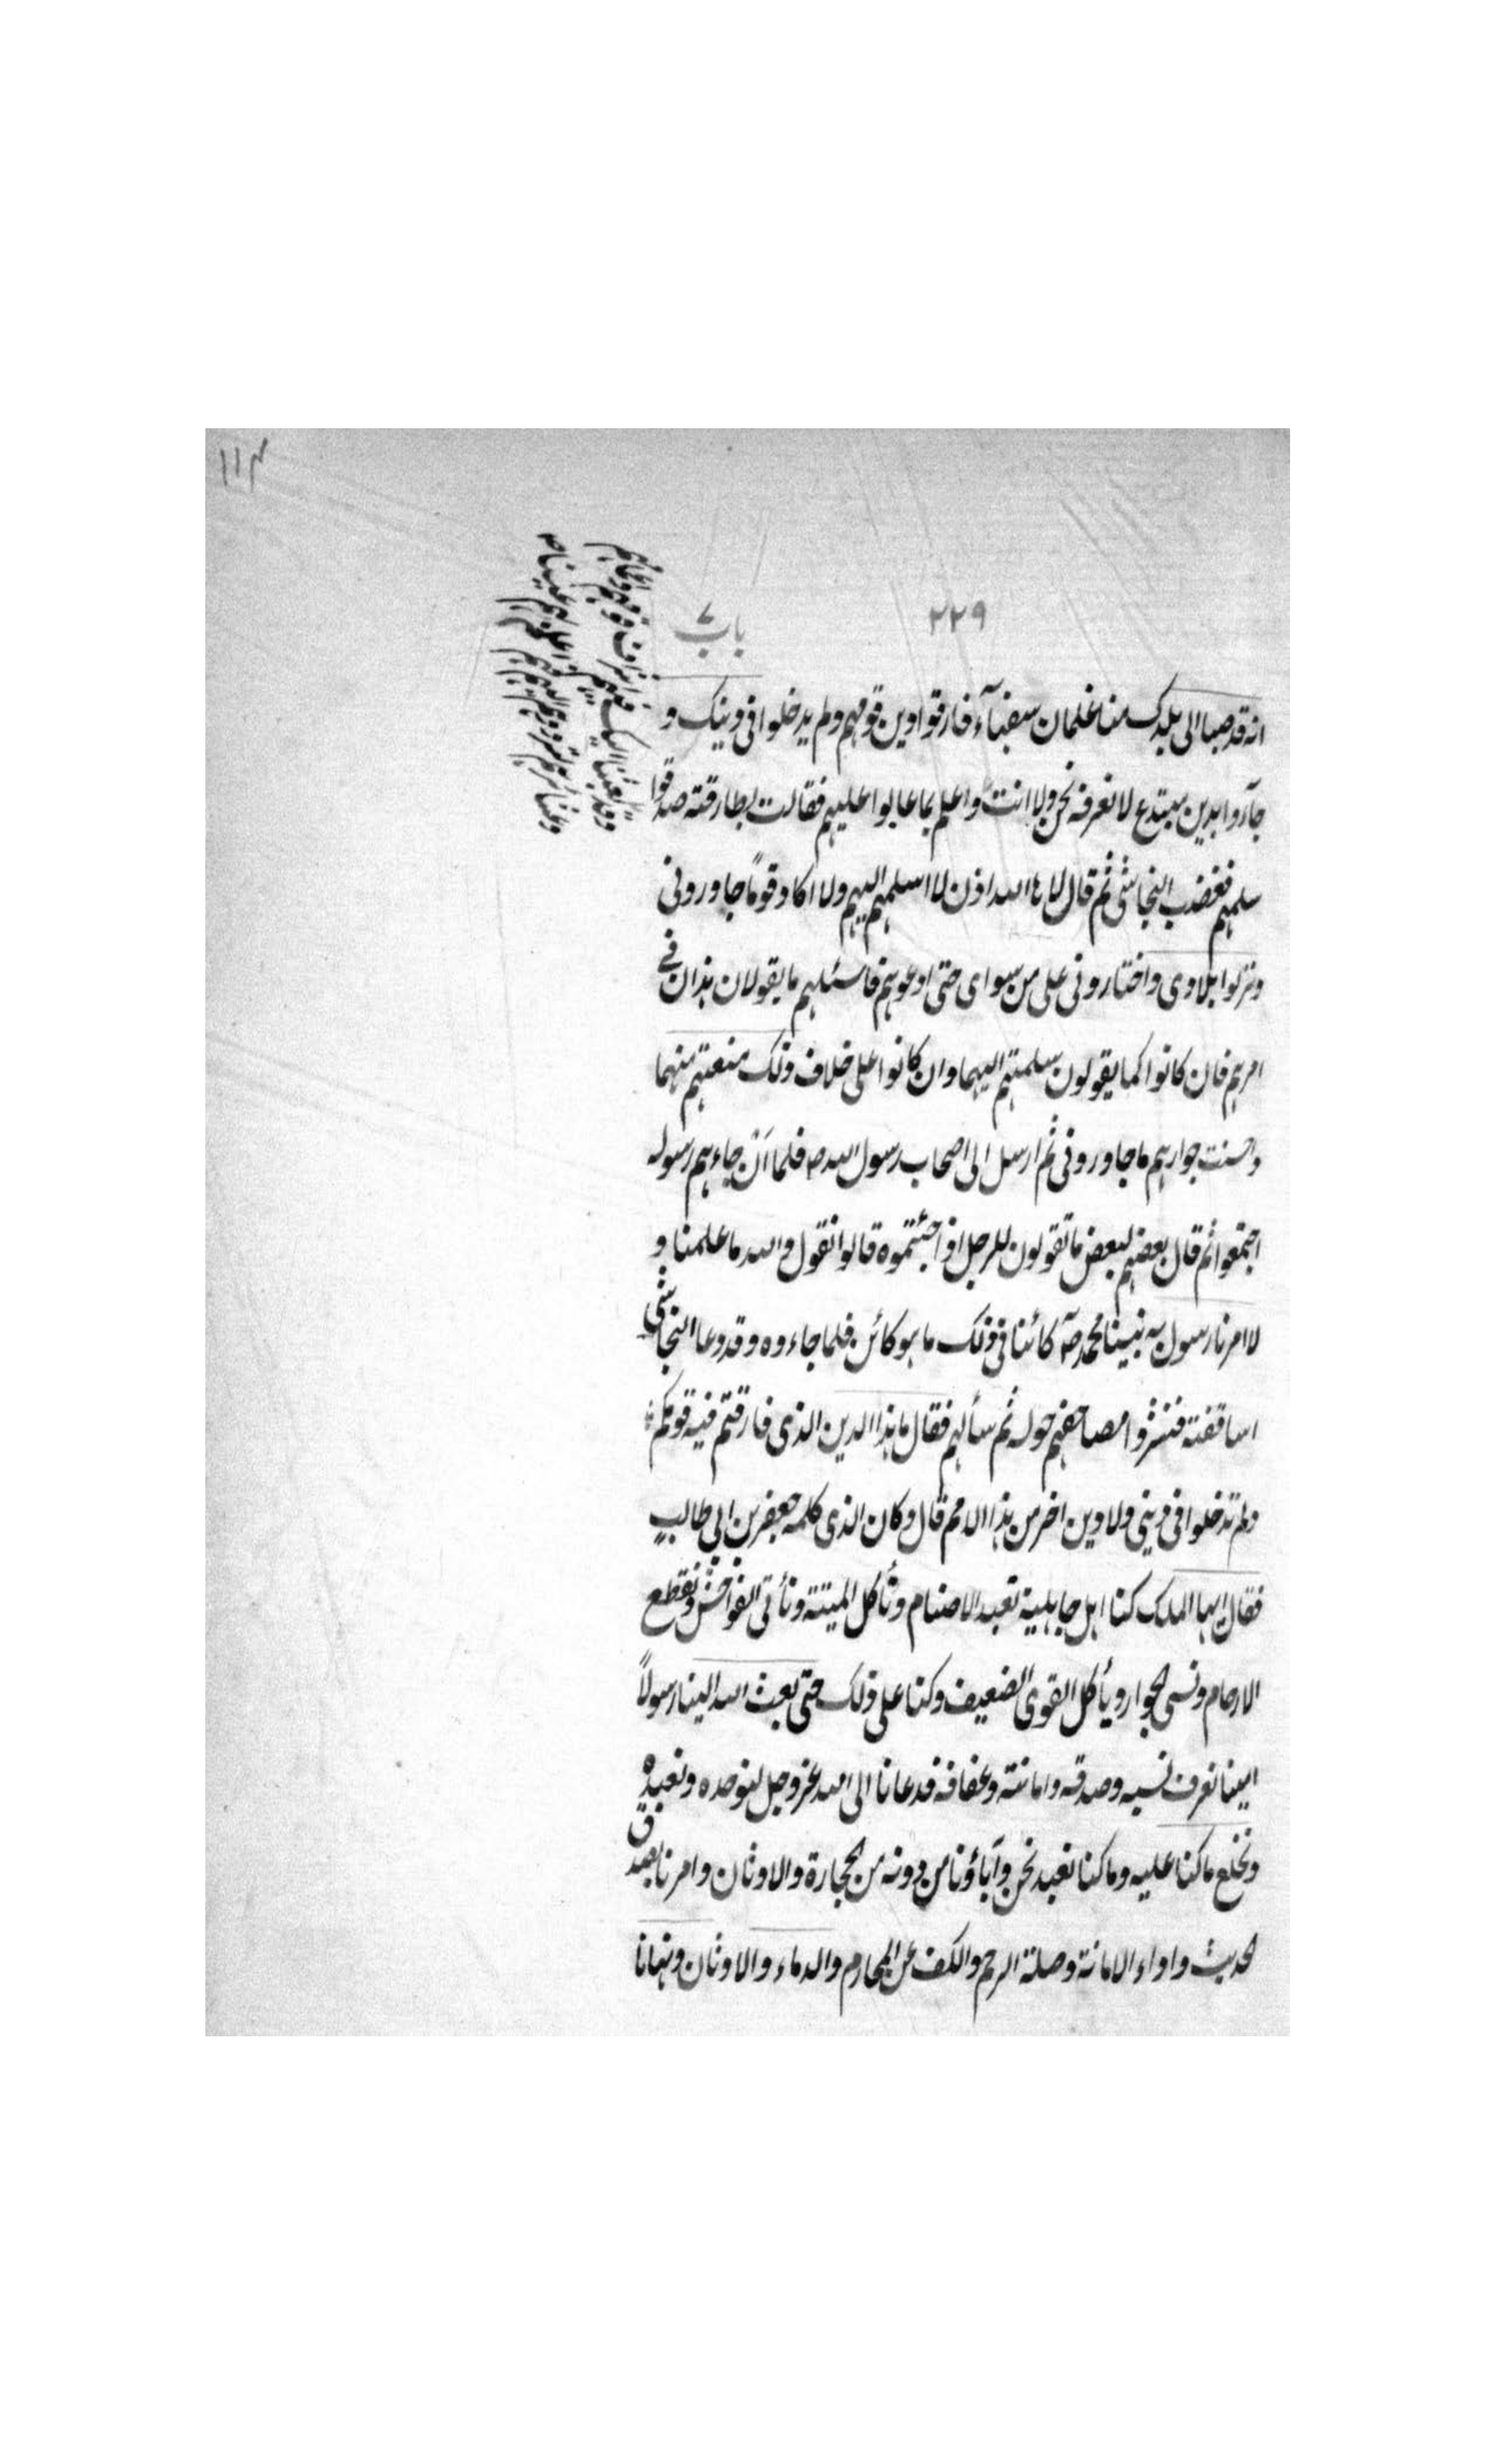 ١١٣
٢٢٩
باب ٧
انه قد صبا الى بلدك منا غلمان سفهآء فارقوا دين قومهم ولم يدخلوا فى دينك و
جآؤا بدين مبتدع لا نعرفه نحن ولا انت واعلم بما عابوا عليهم فقالت بطارقته صدقوا
سلمهم فغضب النجاشى ثم قال لا ها الله اذن لا اسلمهم اليهم ولا اكاد قومًا جاورونى
ونزلوا بلادى واختارونى على من سواى حتى ادعوهم فاسئلهم ما يقولان هذان فے
امرهم فان كانوا كما يقولون سلمتهم اليهما وان كانوا على خلاف ذلك منعتهم منهما
واحسنت جوارهم ما جاورونى ثم ارسل الى اصحاب رسول الله صه فلما اَنْ جاءهم رسوله
اجتمعوا ثم قال بعضهم لبعض ما تقولون للرجل اذا جئتموه قالوا نقول والله ما علمنا و
لا امرنا رسول به نبينا محمد صه كائنا فى ذلك ما هو كائن فلما جاءوه وقد دعا النجاشى
اساقفته فنشروا مصاحفهم حوله ثم سألهم فقال ما هذا الدين الذى فارقتم فيه قومكم
ولم تدخلوا فى دينى ولا دين اخر من هذا الامم قال وكان الذى كلمه جعفر بن ابى طالبٍ
فقال ايها الملك كنا اهل جاهلية نعبد الاصنام ونأكل الميتة ونأتى الفواحش ونقطع
الارحام ونسى الجوار ويأكل القوى الضعيف وكنا على ذلك حتى بعث الله الينا رسولاً
امينا نعرف نسبه وصدقه وامانته وعفافه فدعانا الى الله عز وجل لنوحده ونعبده
ونخلع ما كنا عليه وما كنا نعبد نحن وآباؤنا من دونه من الحجارة والاوثان وامرنا بصدق
الحديث واداء الامانة وصلة الرحم والكف عن المحارم والدماء والاوثان ونهانا